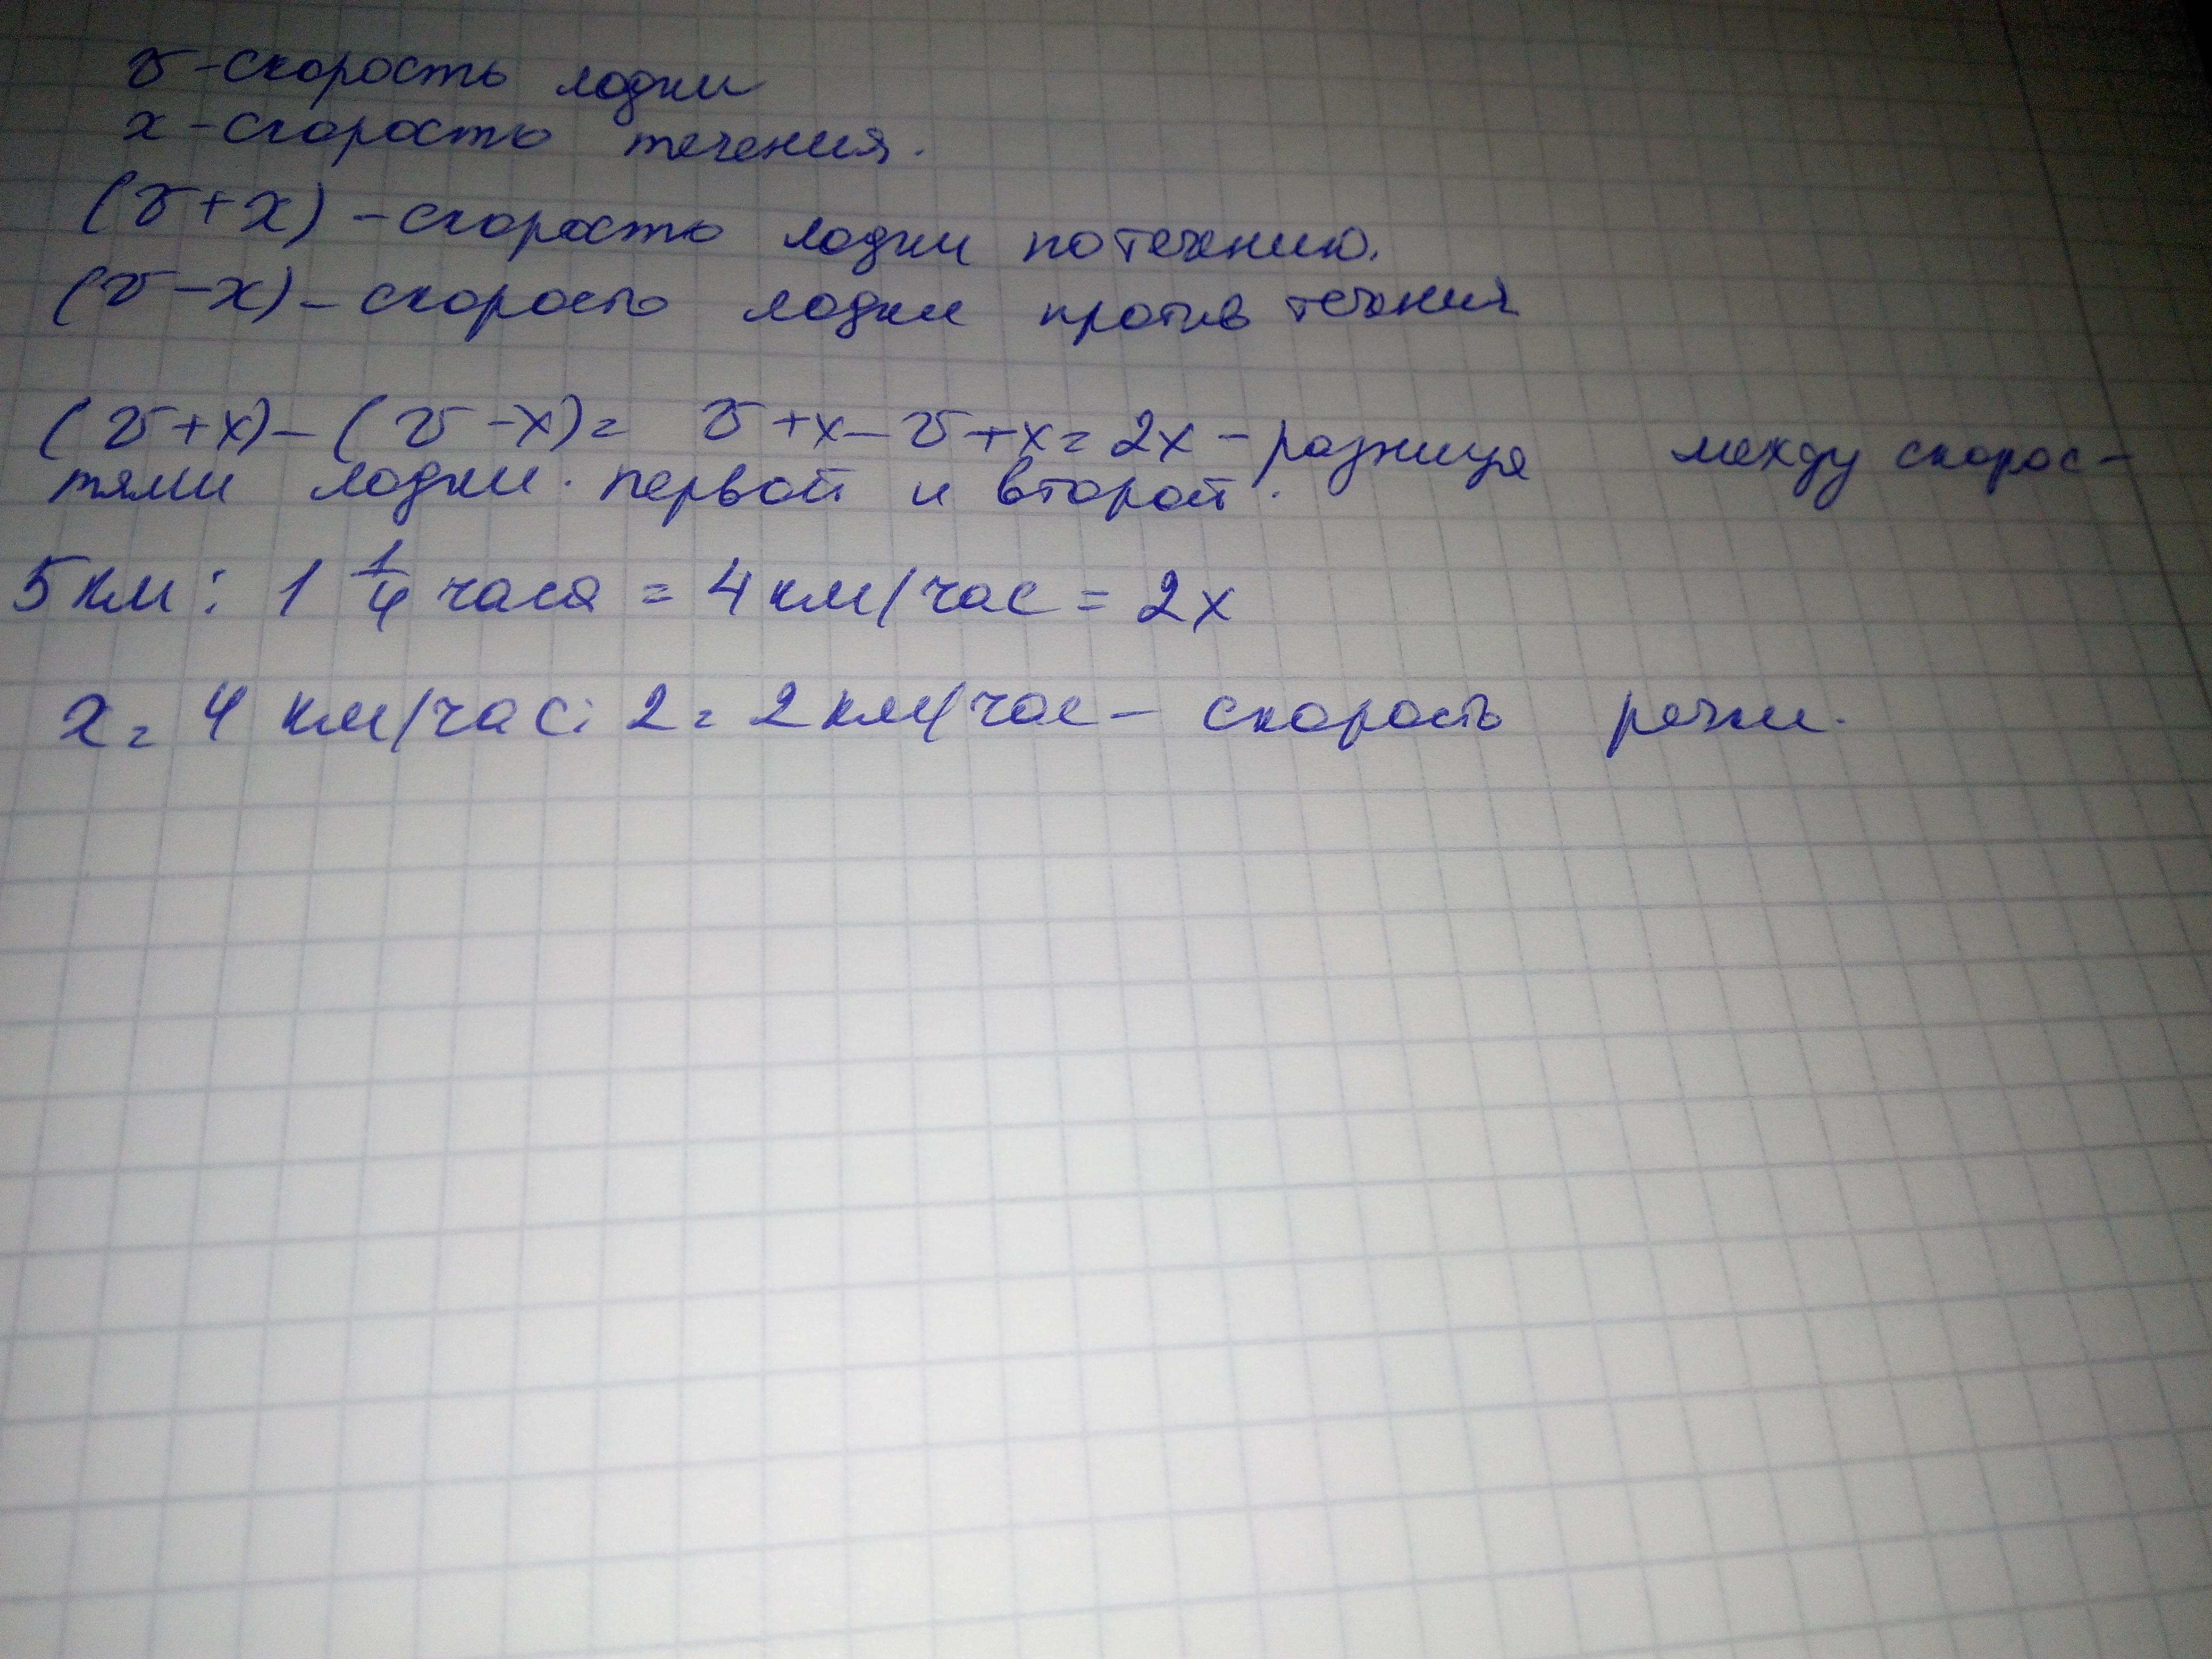 v - скорость лодки
x - скорость течения.
(v + x) - скорость лодки по течению.
(v - x) - скорость лодки против течения
(v + x) - (v - x) = v + x - v + x = 2x - разница между скорос-
тями лодки. первой и второй.
5 км : 1 1/4 часа = 4 км/час = 2x
x = 4 км/час : 2 = 2 км/час - скорость речки.